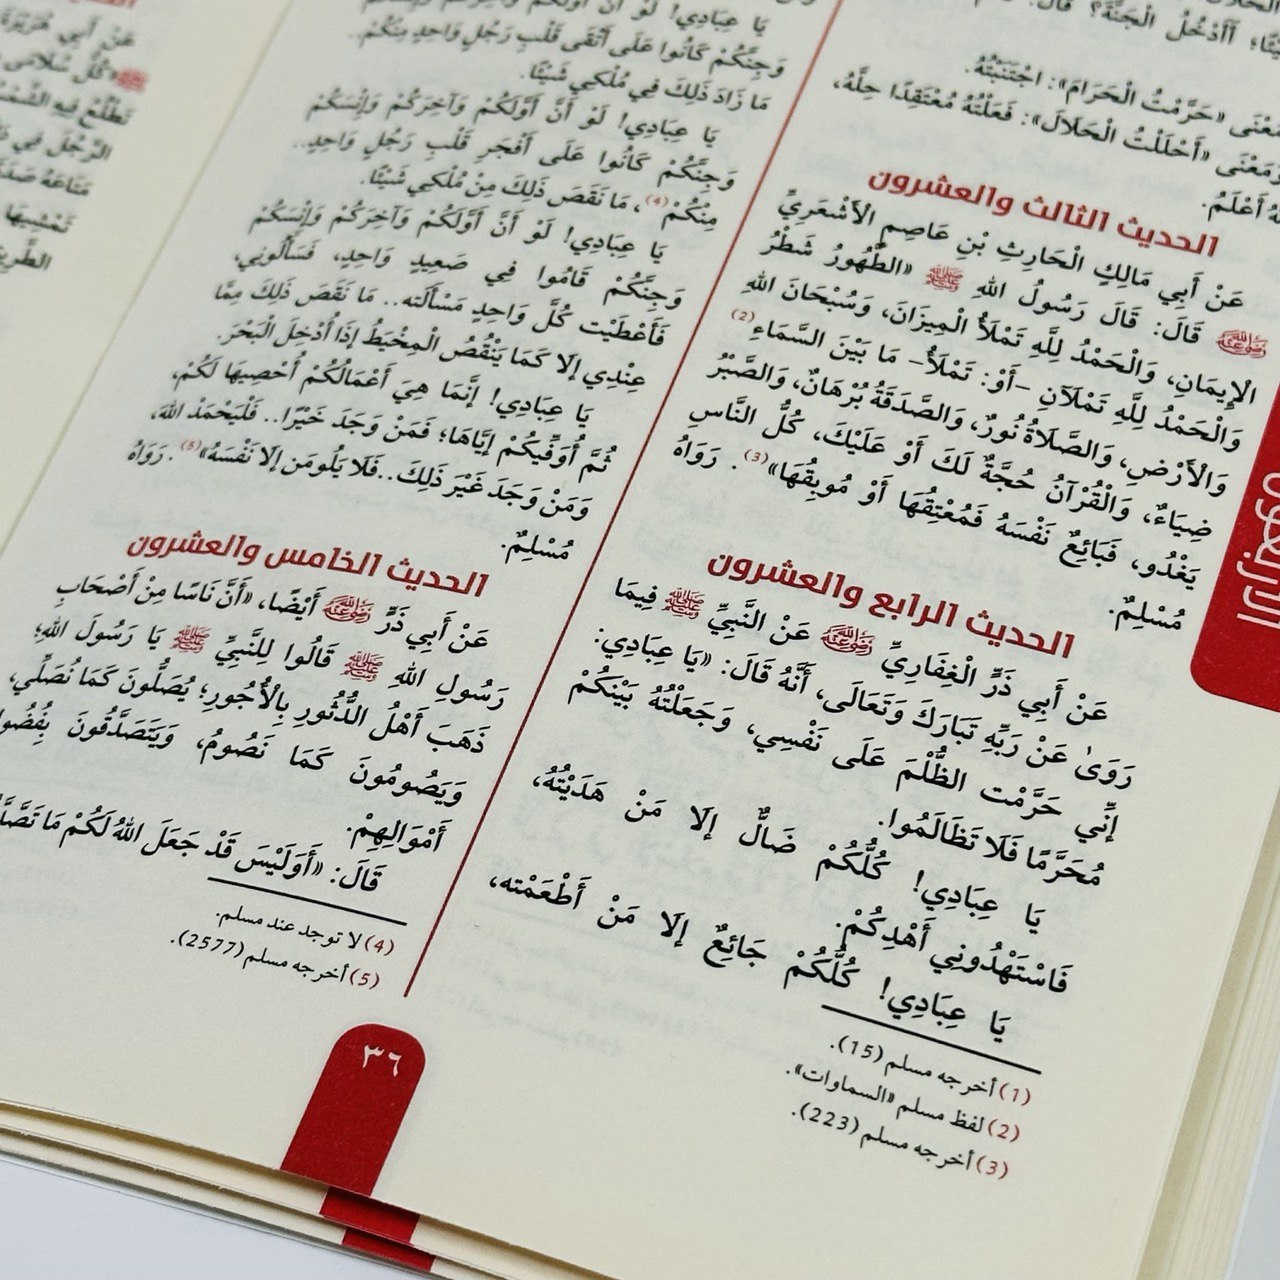 الْجَنَّةَ؟ قَالَ:
أَأَدْخُلُ الْجَنَّةَ؟ قَالَ
«حَرَّمْتُ الْحَرَامَ»: اجْتَنَبْتُهُ.
وَمَعْنَى «أَحْلَلْتُ الْحَلَالَ»: فَعَلْتُهُ مُعْتَقِدًا حِلَّهُ،
أَعْلَمُ.
الحديث الثالث والعشرون
عَنْ أَبِي مَالِكٍ الْحَارِثِ بْنِ عَاصِمٍ الْأَشْعَرِيِّ
ﷺ قَالَ: قَالَ رَسُولُ اللهِ ﷺ «الطُّهُورُ شَطْرُ
الْإِيمَانِ، وَالْحَمْدُ لِلَّهِ تَمْلَأُ الْمِيزَانَ، وَسُبْحَانَ اللهِ
وَالْحَمْدُ لِلَّهِ تَمْلَآنِ -أَوْ: تَمْلَأُ- مَا بَيْنَ السَّمَاءِ(2)
وَالْأَرْضِ، وَالصَّلَاةُ نُورٌ، وَالصَّدَقَةُ بُرْهَانٌ، وَالصَّبْرُ
ضِيَاءٌ، وَالْقُرْآنُ حُجَّةٌ لَكَ أَوْ عَلَيْكَ، كُلُّ النَّاسِ
يَغْدُو، فَبَائِعٌ نَفْسَهُ فَمُعْتِقُهَا أَوْ مُوبِقُهَا»(3). رَوَاهُ
مُسْلِمٌ.
الحديث الرابع والعشرون
عَنْ أَبِي ذَرٍّ الْغِفَارِيِّ عَنْ النَّبِيِّ ﷺ فِيمَا
رَوَى عَنْ رَبِّهِ تَبَارَكَ وَتَعَالَى، أَنَّهُ قَالَ: «يَا عِبَادِي:
إِنِّي حَرَّمْت الظُّلْمَ عَلَى نَفْسِي، وَجَعَلْتُهُ بَيْنَكُمْ
مُحَرَّمًا فَلَا تَظَالَمُوا.
يَا عِبَادِي! كُلُّكُمْ ضَالٌّ إلَا مَنْ هَدَيْتُهُ،
فَاسْتَهْدُونِي أَهْدِكُمْ.
يَا عِبَادِي! كُلُّكُمْ جَائِعٌ إلَا مَنْ أَطْعَمْته،
(1) أخرجه مسلم (15).
(2) لفظ مسلم «السماوات».
(3) أخرجه مسلم (223).
يَا عِبَادِي! لَوْ أَنَّ أَوَّلَكُمْ وَآخِرَكُمْ
وَجِنَّكُمْ كَانُوا عَلَى أَتْقَى قَلْبِ رَجُلٍ وَاحِدٍ مِنْكُمْ.
مَا زَادَ ذَلِكَ فِي مُلْكِي شَيْئًا.
يَا عِبَادِي! لَوْ أَنَّ أَوَّلَكُمْ وَآخِرَكُمْ وَإِنْسَكُمْ
وَجِنَّكُمْ كَانُوا عَلَى أَفْجَرِ قَلْبِ رَجُلٍ وَاحِدٍ..
مِنْكُمْ(4)، مَا نَقَصَ ذَلِكَ مِنْ مُلْكِي شَيْئًا.
يَا عِبَادِي! لَوْ أَنَّ أَوَّلَكُمْ وَآخِرَكُمْ وَإِنْسَكُمْ
وَجِنَّكُمْ قَامُوا فِي صَعِيدٍ وَاحِدٍ، فَسَأَلُونِي،
فَأَعْطَيْت كُلَّ وَاحِدٍ مَسْأَلَته.. مَا نَقَصَ ذَلِكَ مِمَّا
عِنْدِي إلَا كَمَا يَنْقُصُ الْمِخْيَطُ إذَا أُدْخِلَ الْبَحْرَ.
يَا عِبَادِي! إنَّمَا هِيَ أَعْمَالُكُمْ أُحْصِيهَا لَكُمْ،
ثُمَّ أُوَفِّيكُمْ إيَّاهَا؛ فَمَنْ وَجَدَ خَيْرًا.. فَلْيَحْمَدْ اللهَ،
وَمَنْ وَجَدَ غَيْرَ ذَلِكَ.. فَلَا يَلُومَن إلَا نَفْسَهُ»(5). رَوَاهُ
مُسْلِمٌ.
الحديث الخامس والعشرون
عَنْ أَبِي ذَرٍّ أَيْضًا، «أَنَّ نَاسًا مِنْ أَصْحَابِ
رَسُولِ اللهِ ﷺ قَالُوا لِلنَّبِيِّ ﷺ يَا رَسُولَ اللهِ؛
ذَهَبَ أَهْلُ الدُّثُورِ بِالْأُجُورِ؛ يُصَلُّونَ كَمَا نُصَلِّي،
وَيَصُومُونَ كَمَا نَصُومُ، وَيَتَصَدَّقُونَ
أَمْوَالِهِمْ.
قَالَ: «أَوَلَيْسَ قَدْ جَعَلَ اللهُ لَكُمْ مَا
(4) لا توجد عند مسلم.
(5) أخرجه مسلم (2577).
٣٦
عَنْ أَبِي هُرَيْرَةَ
«كُلُّ سُلَامَى
تَطْلُعُ فِيهِ الشَّمْسُ
الرَّجُلَ فِي
مَتَاعَهُ
تَمْشِيهَا